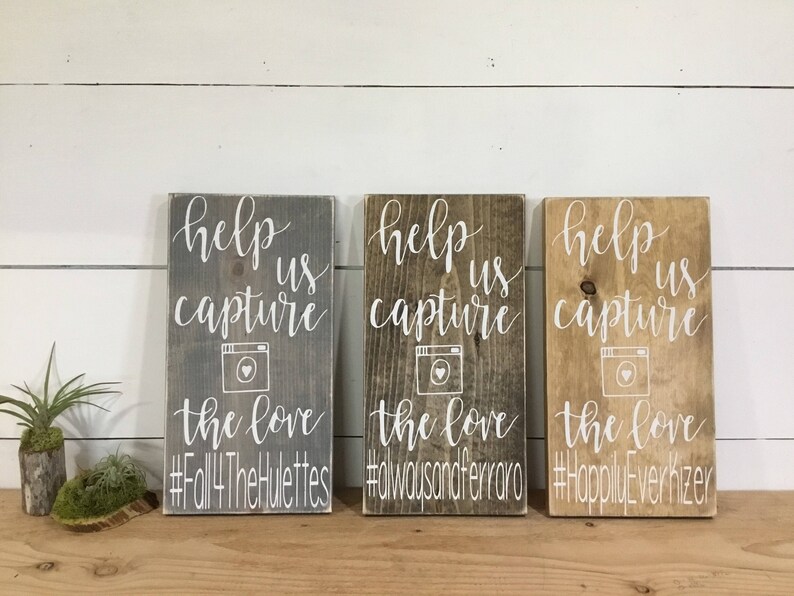 help
us
capture
the love
#Fall4TheHulettes
help
us
capture
the love
#alwaysandferraro
help
us
capture
the love
#HappilyEverKizer